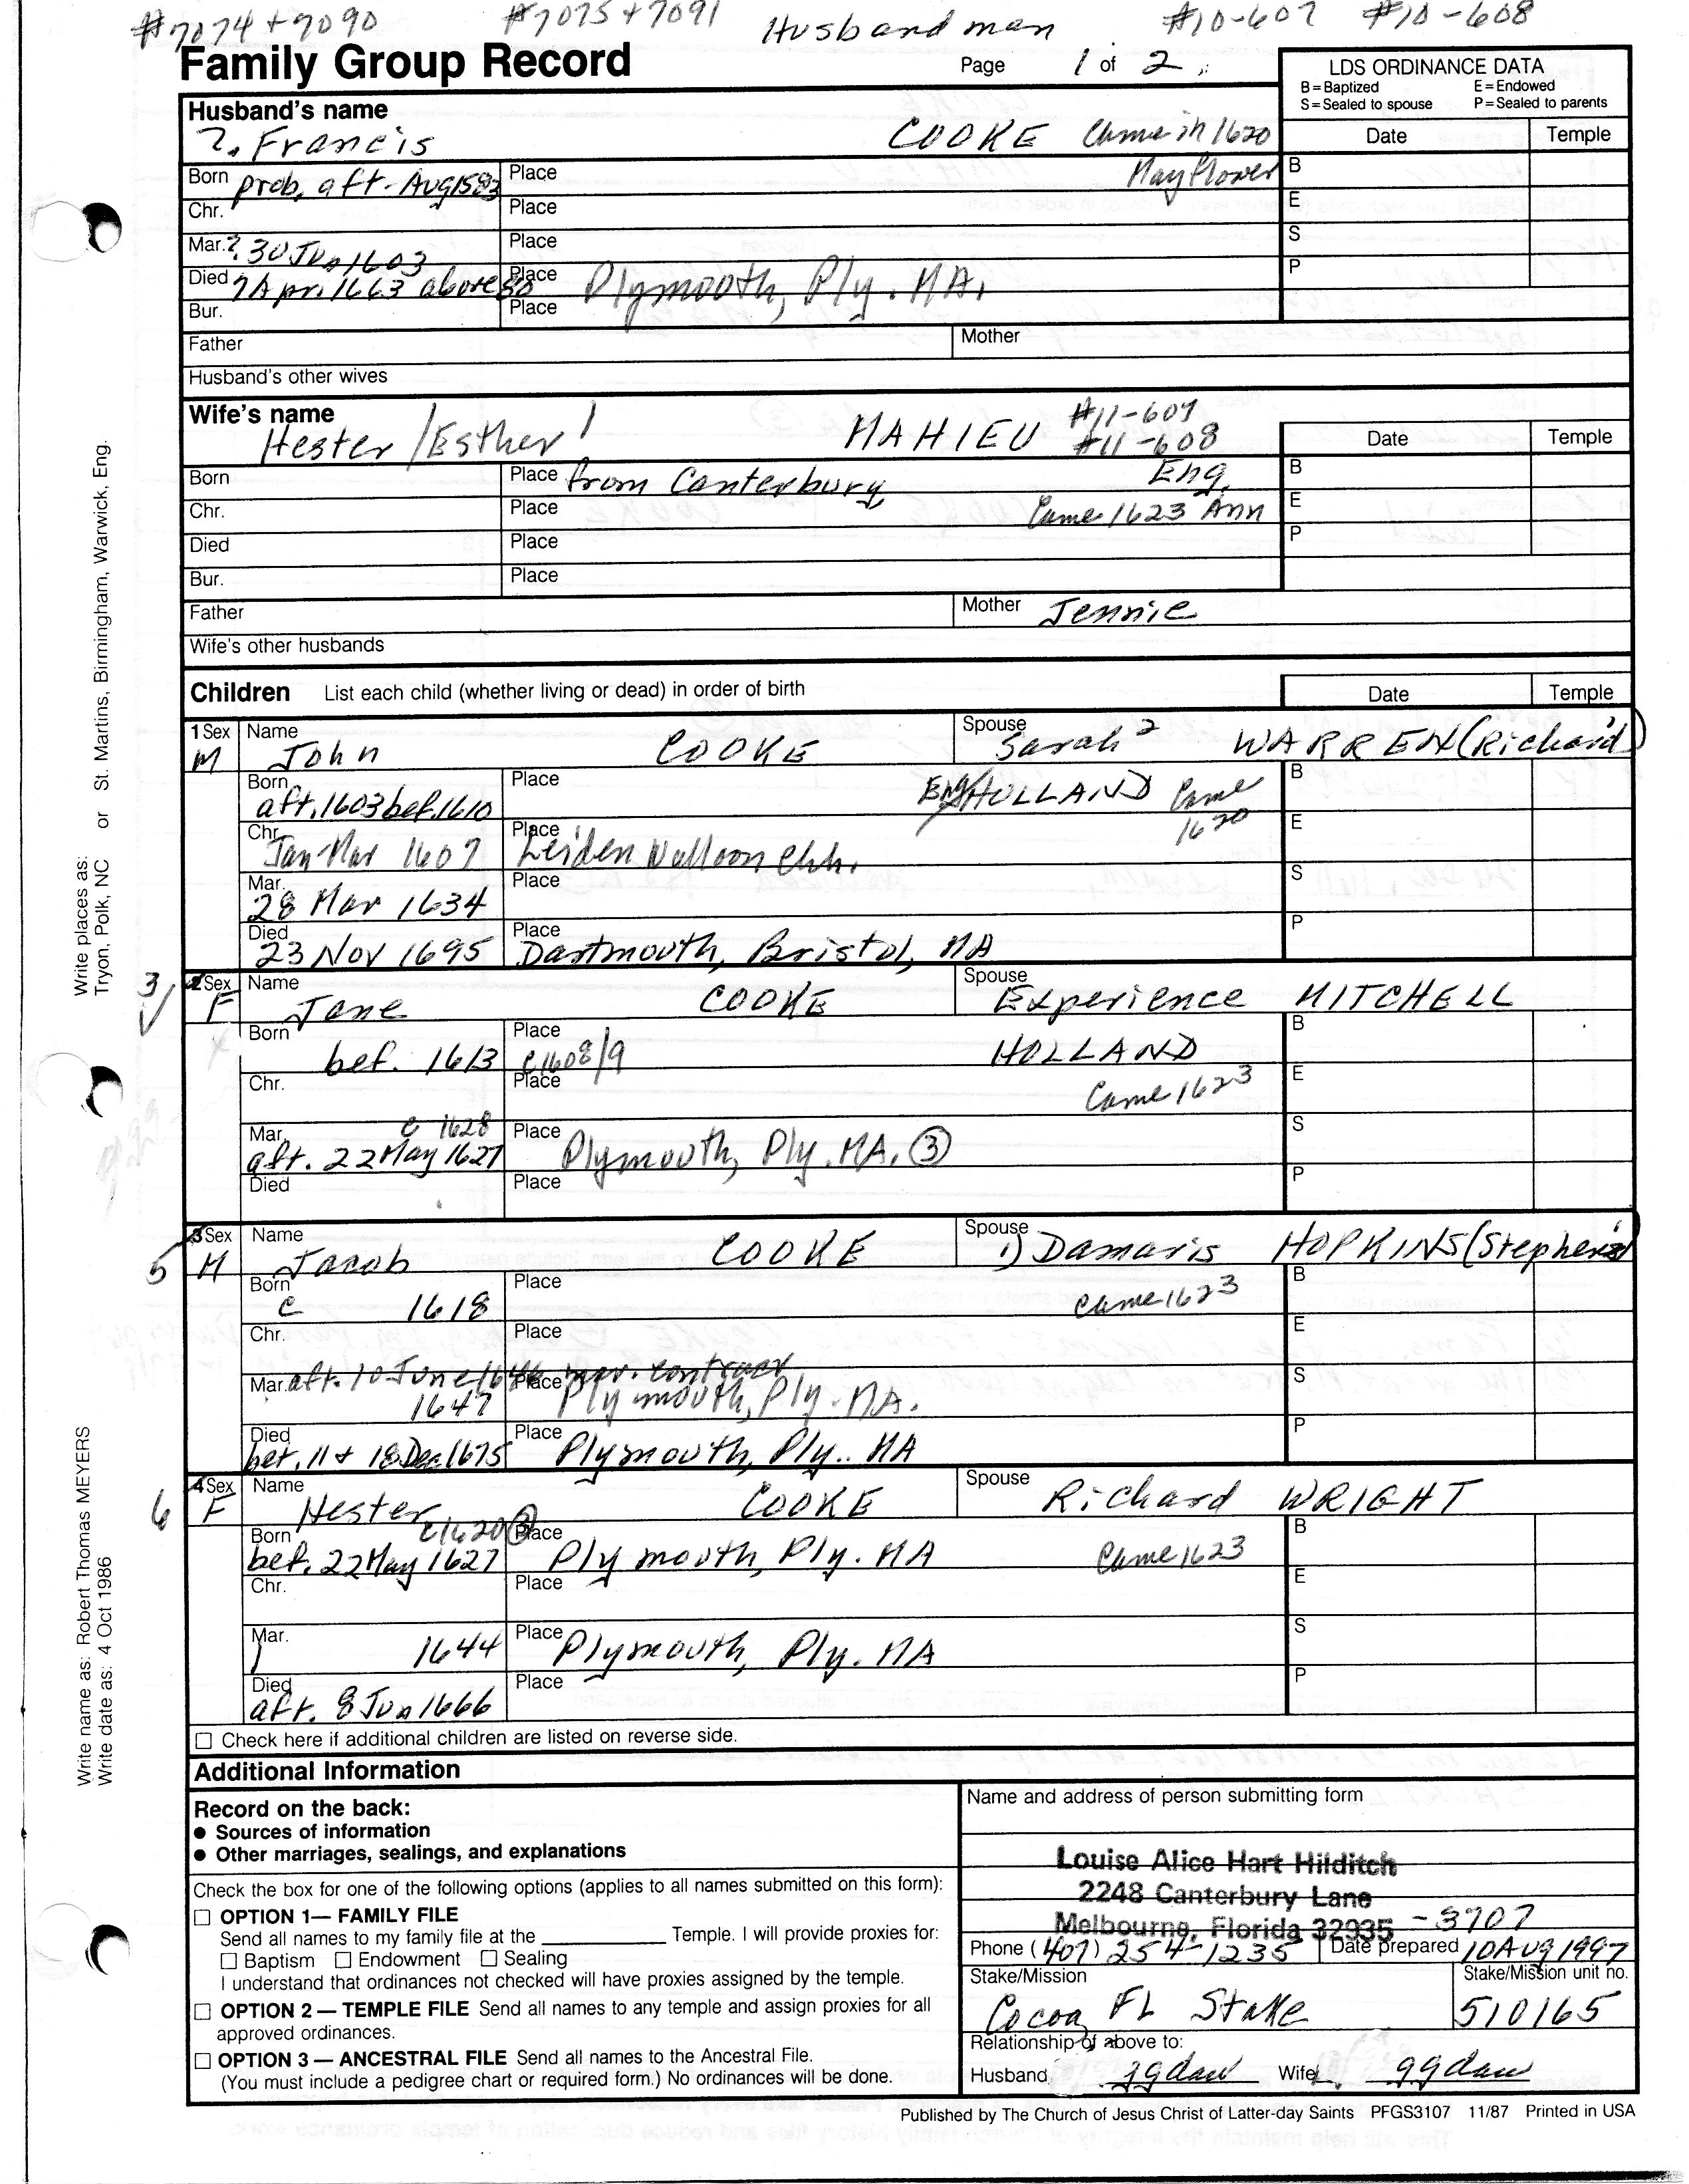 #7074 + 7090 #7075 + 7091 Husbandman #10-607 #10-608
Family Group Record Page 1 of 2
LDS ORDINANCE DATA
B=Baptized E=Endowed
S=Sealed to spouse P=Sealed to parents
Husband's name
Francis COOKE Came in 1620
Mayflower
Date Temple
Born prob. aft. Aug 1583 Place B
Chr. Place E
Mar. ? 30 Jun 1603 Place S
Died 7 Apr. 1663 above 80 Place Plymouth, Ply. MA. P
Bur. Place
Father Mother
Husband's other wives
Wife's name
Hester /Esther/ MAHIEU #11-607
#11-608
Date Temple
Born Place from Canterbury, Eng. B
Chr. Place Came 1623 Ann E
Died Place P
Bur. Place
Father Mother Jennie
Wife's other husbands
Children List each child (whether living or dead) in order of birth Date Temple
1 Sex Name Spouse
M John COOKE Sarah 2 WARREN (Richard)
Born aft. 1603 bef. 1610 Place Eng/HOLLAND Came 1620 B
Chr. Jan-Mar 1607 Place Leiden Walloon Chh. E
Mar. 28 Mar 1634 Place S
Died 23 Nov 1695 Place Dartmouth, Bristol, MA P
3 2 Sex Name Spouse
F Jane COOKE Experience MITCHELL
Born bef. 1613 Place c1608/9 HOLLAND B
Chr. Place Came 1623 E
Mar. c 1628
aft. 22 May 1627 Place Plymouth, Ply. MA. (3) S
Died Place P
5 3 Sex Name Spouse
M Jacob COOKE 1) Damaris HOPKINS (Stephens)
Born c 1618 Place Came 1623 B
Chr. Place E
Mar. aft. 10 June 1646 mar. contract
1647 Place Plymouth, Ply. MA. S
Died bet. 11 + 18 Dec 1675 Place Plymouth, Ply.. MA P
6 4 Sex Name Spouse
F Hester COOKE Richard WRIGHT
Born c1620 (3)
bef. 22 May 1627 Place Plymouth, Ply. MA Came 1623 B
Chr. Place E
Mar. 1644 Place Plymouth, Ply. MA S
Died aft. 8 Jun 1666 Place P
Check here if additional children are listed on reverse side.
Additional Information
Record on the back:
● Sources of information
● Other marriages, sealings, and explanations
Check the box for one of the following options (applies to all names submitted on this form):
OPTION 1— FAMILY FILE
Send all names to my family file at the ____________ Temple. I will provide proxies for:
Baptism Endowment Sealing
I understand that ordinances not checked will have proxies assigned by the temple.
OPTION 2 — TEMPLE FILE Send all names to any temple and assign proxies for all
approved ordinances.
OPTION 3 — ANCESTRAL FILE Send all names to the Ancestral File.
(You must include a pedigree chart or required form.) No ordinances will be done.
Name and address of person submitting form
Louise Alice Hart Hilditch
2248 Canterbury Lane
Melbourne, Florida 32935 -3707
Phone (407) 254-1235 Date prepared 10 Aug 1997
Stake/Mission Stake/Mission unit no.
Cocoa FL Stake 510165
Relationship of above to:
Husband ggdau Wife ggdau
Published by The Church of Jesus Christ of Latter-day Saints PFGS3107 11/87 Printed in USA
Write places as:
Tryon, Polk, NC or St. Martins, Birmingham, Warwick, Eng.
Write name as: Robert Thomas MEYERS
Write date as: 4 Oct 1986